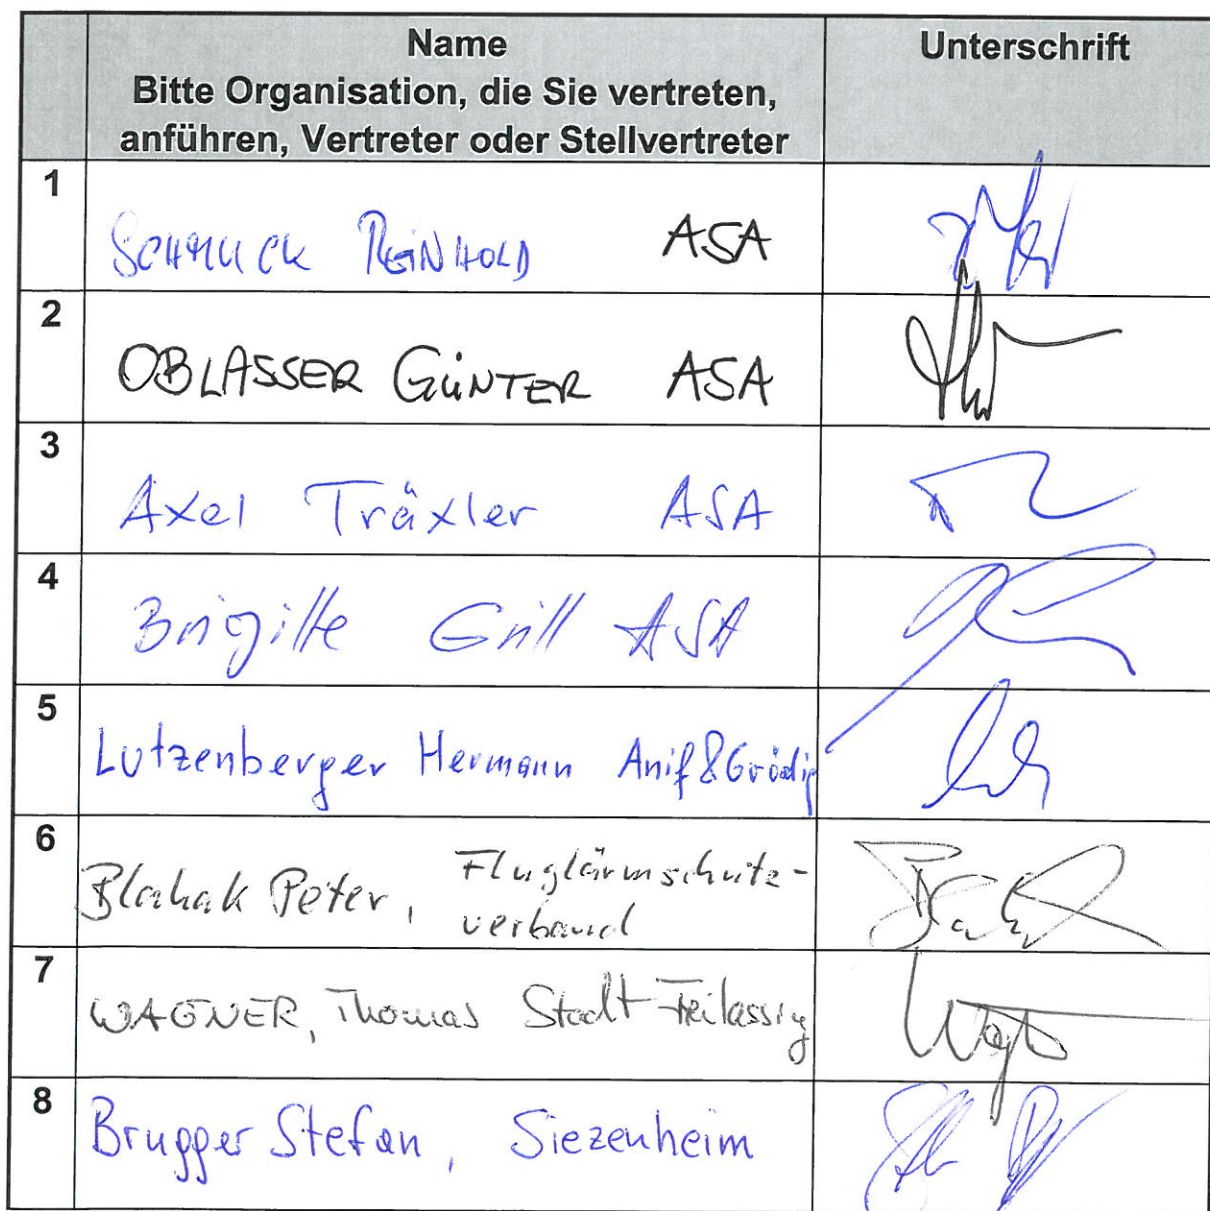 Name
Unterschrift
Bitte Organisation, die Sie vertreten,
anführen, Vertreter oder Stellvertreter
1
SCHMUCK REINHOLD ASA
2
OBLASSER GÜNTER ASA
3
Axel Träxler ASA
4
Brigitte Grill ASA
5
Lutzenberger Hermann Anif & Grödig
6
Blahak Peter, Fluglärmschutz-
verband
7
WAGNER, Thomas Stadt Freilassing
8
Brugger Stefan, Siezenheim